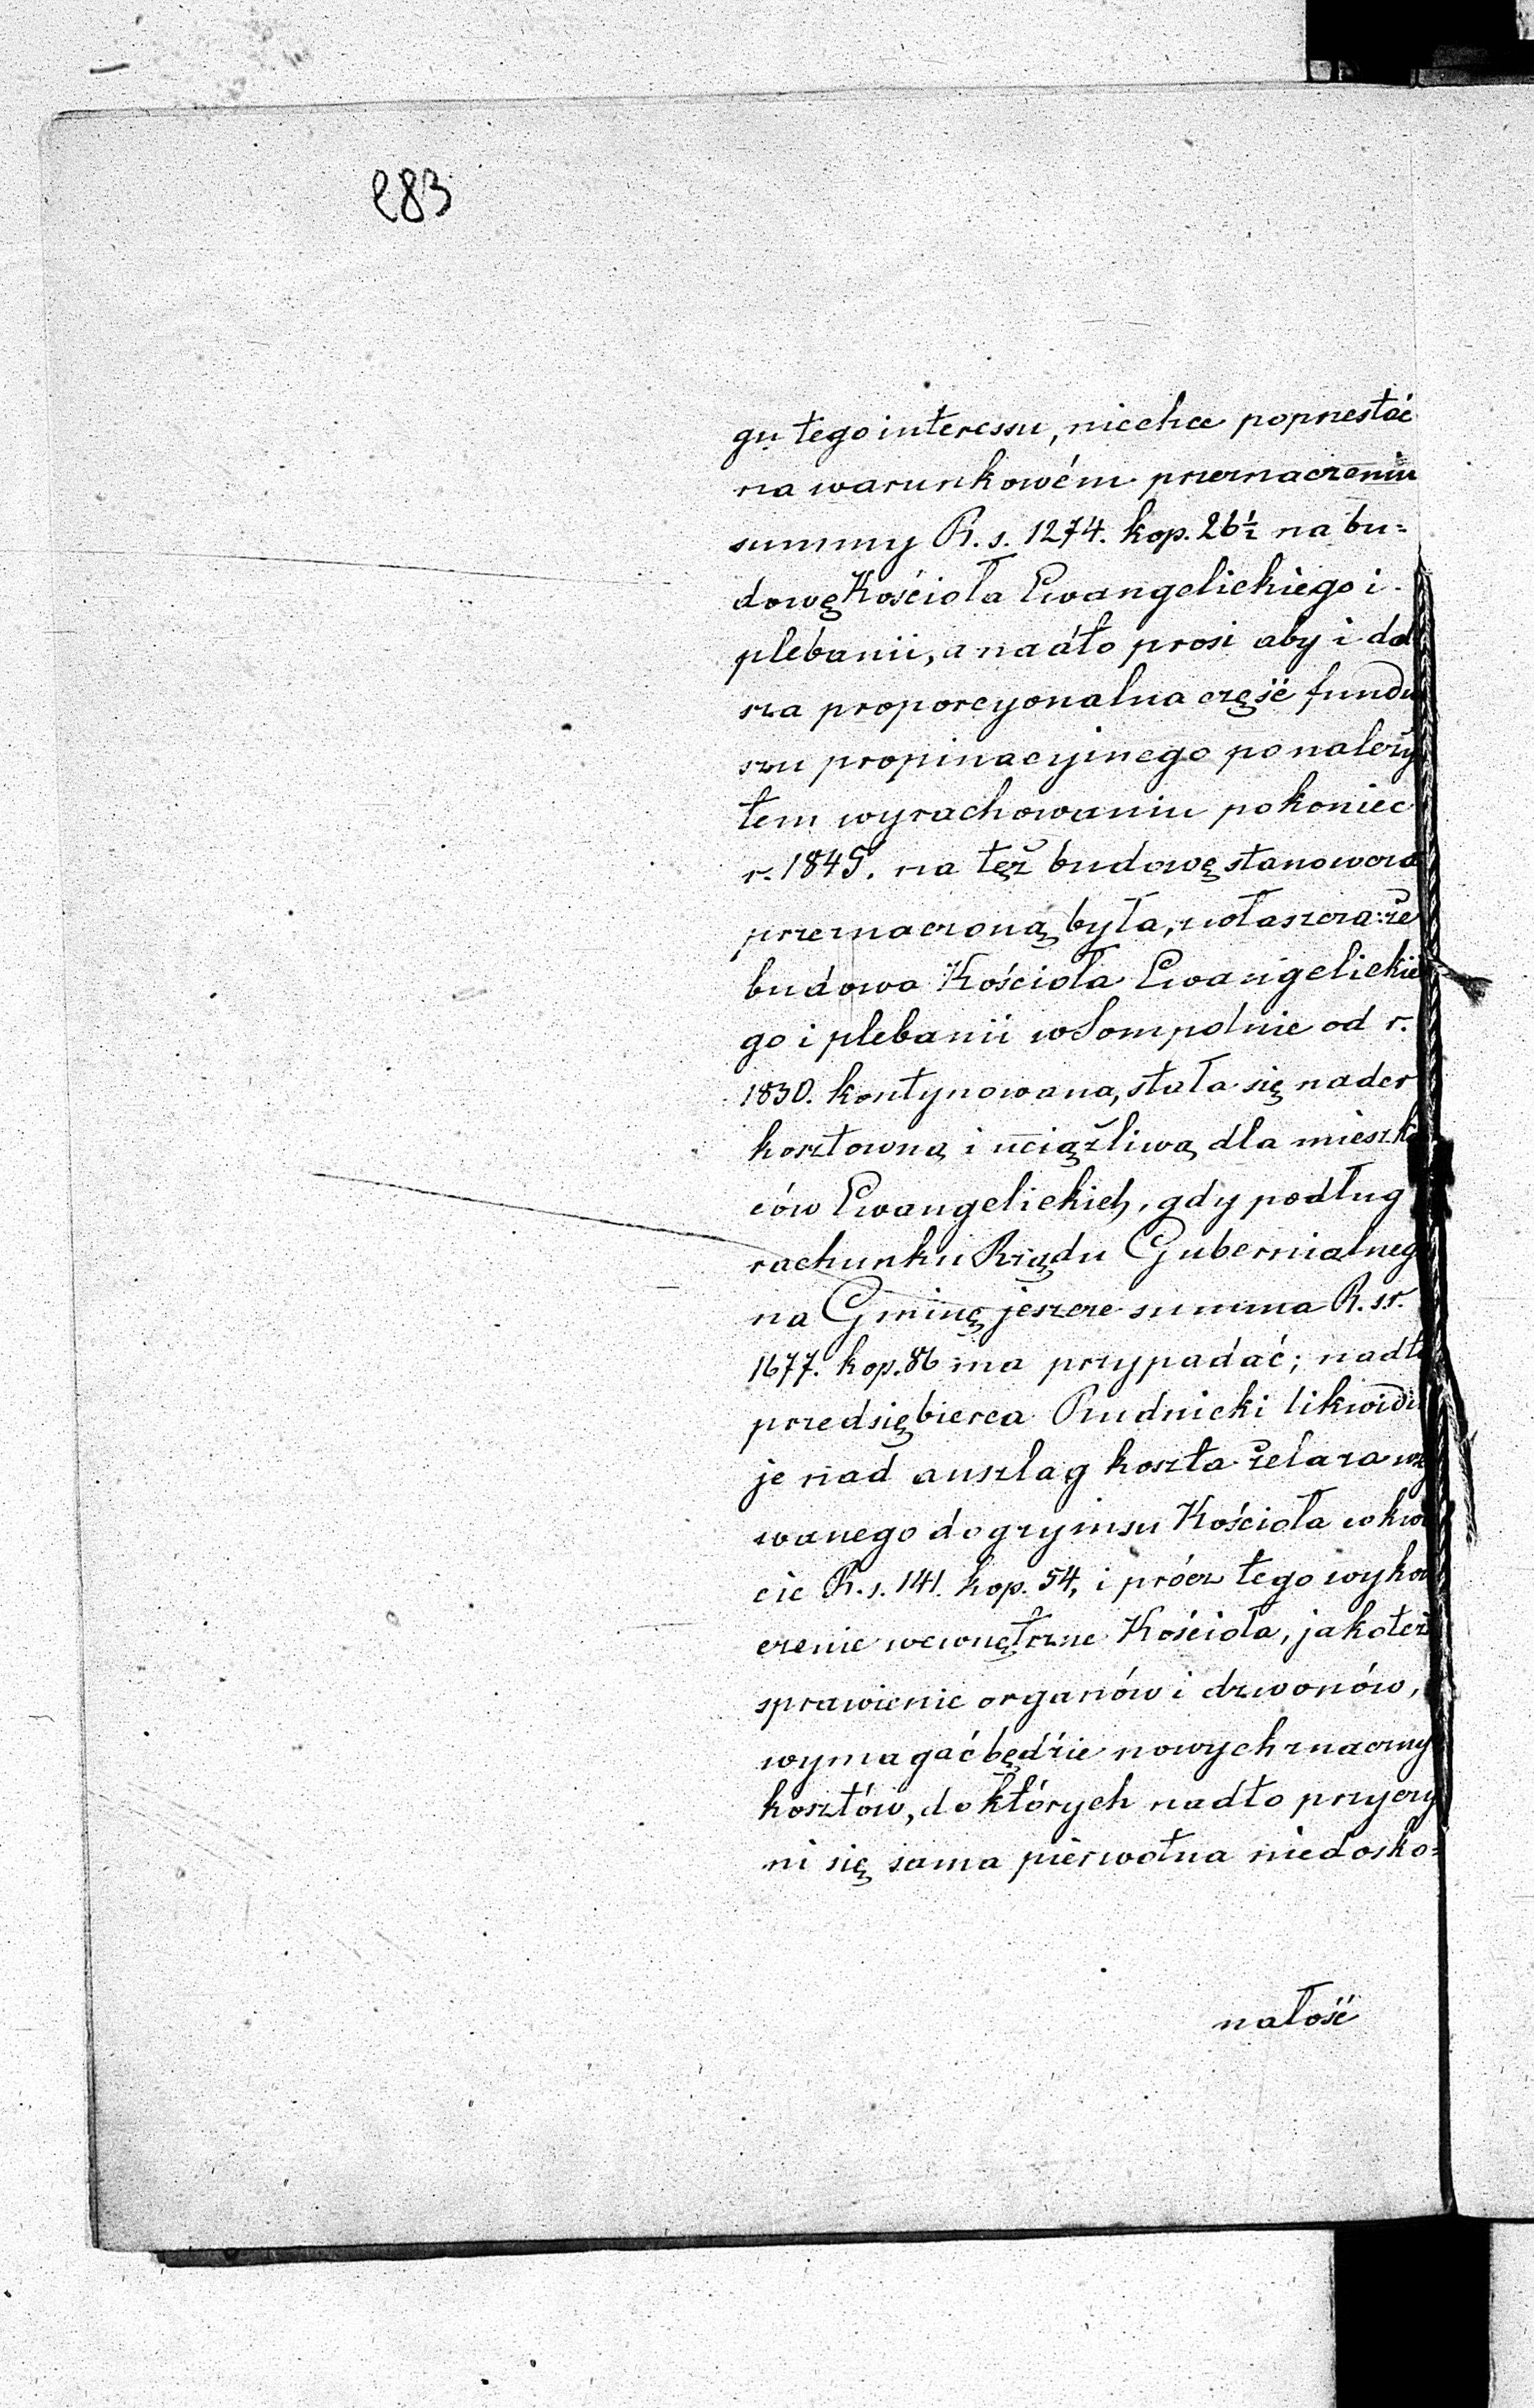 283
gu tego interessu, niechce poprzestać
na warunkowém przeznaczeniu
summy R. s. 1274. kop. 26½ na bu=
dowę Kościoła Ewangelickiego i
plebanii, a nadto prosi aby i dal
sza proporcyonalna część fundu
szu propinacyjnego po należy
tem wyrachowaniu po koniec
r. 1845. na tęż budowę stanowczo
przeznaczoną była, zwłaszcza: że
budowa Kościoła Ewangelickie
go i plebanii w Sompolnie od r.
1830. kontynowana, stała się nader
kosztowną i uciążliwą dla mieszka
ców Ewangelickich, gdy podług
rachunku Rządu Gubernialnego
na Gminę jeszcze summa R. sr.
1677. kop. 86 ma przypadać; nadto
przedsiębierca Rudnicki likwidu
je nad anszlag koszta żelaza uży
wanego do gzymsu Kościoła w kwo
cie R. s. 141. kop. 54, i prócz tego wykoń
czenie wewnętrzne Kościoła, jakoteż
sprawienie organów i dzwonów,
wymagać będzie nowych znaczny
kosztów, do których nadto przyczy
ni się sama pierwotna niedosko=
nałość